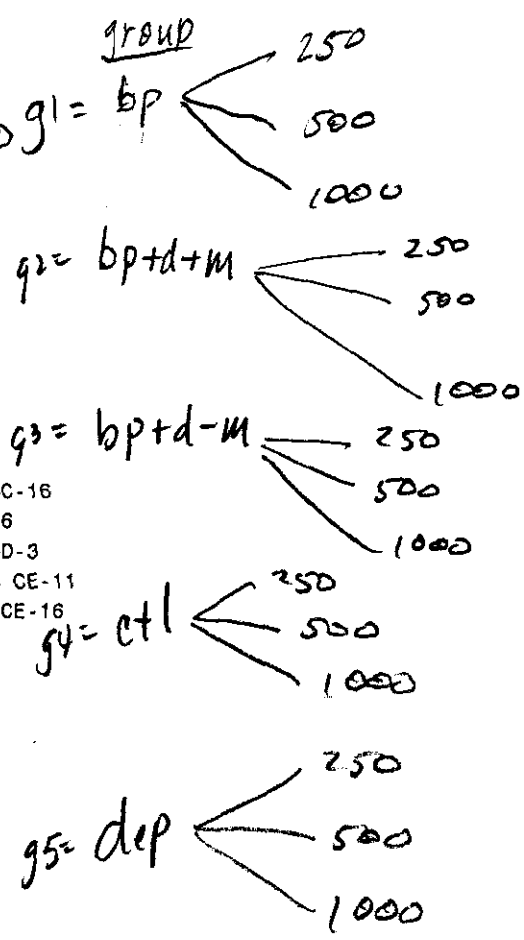 group
250
g1= bp
500
1000
g2= bp+d+m
250
500
1000
g3= bp+d-m
250
500
1000
C-16
6
D-3
CE-11
CE-16
250
g4= ctl
500
1000
250
g5= dep
500
1000